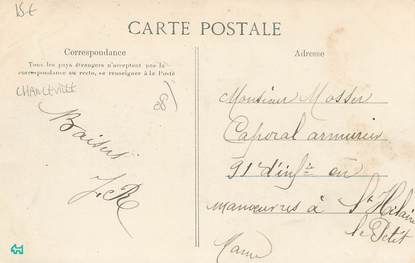 15€
CARTE POSTALE
Correspondance
Tous les pays étrangers n'acceptent pas la
correspondance au recto, se renseigner à la Poste
CHARLEVILLE
08
Baisers
J.R
Adresse
Monsieur Mosser
Caporal armurier
91e d'infie en
manœuvres à St Hilaire
le Petit
Marne